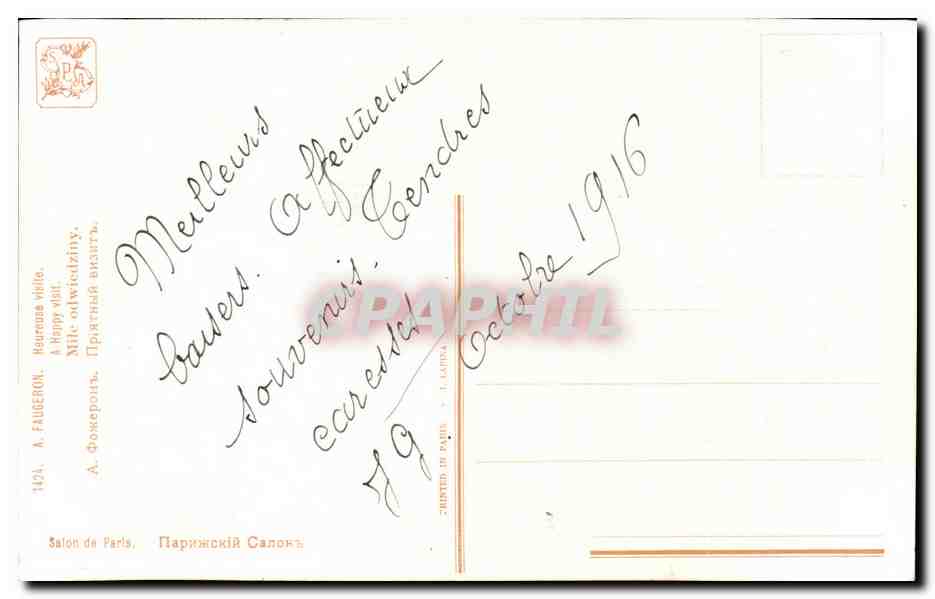 Meilleurs
baisers. Affectueux
souvenirs. Tendres
caresses
JG
Octobre 1916
1424. A. FAUGERON. Heureuse visite.
A Happy visit.
Miłe odwiedziny.
А. Фожеронъ. Пріятный визитъ.
Salon de Paris. Парижскій Салонъ
PRINTED IN PARIS I. LAPINA
CPAPHIL